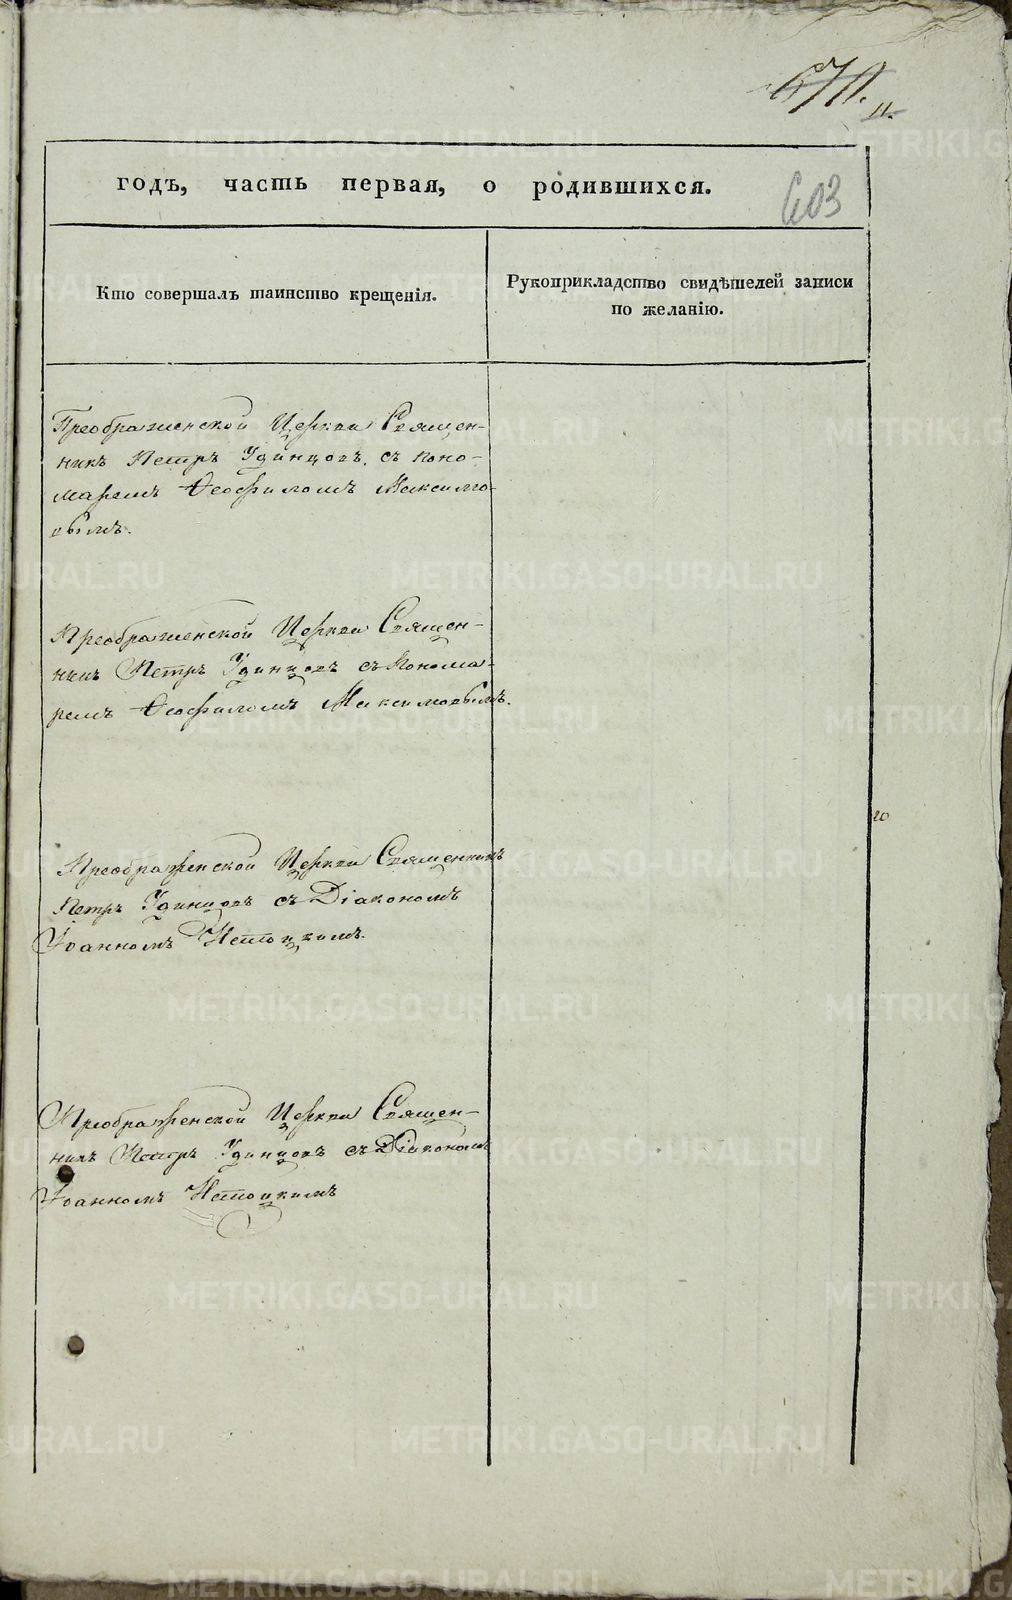 670.
11.
годъ, часть первая, о родившихся.
603
Кто совершалъ таинство крещенія.
Рукоприкладство свидѣтелей записи
по желанію.
Преображенской Церкви Священ-
никъ Петръ Удинцовъ, съ поно-
маремъ Ѳеофиломъ Максимо-
вымъ.
Преображенской Церкви Священ-
никъ Петръ Удинцовъ съ Понома-
ремъ Ѳеофиломъ Максимовымъ.
20
Преображенской Церкви Священникъ
Петръ Удинцовъ съ Діакономъ
Іоанномъ
Преображенской Церкви Священ-
никъ Петръ Удинцовъ съ Діакономъ
Іоанномъ
METRIKI.GASO-URAL.RU